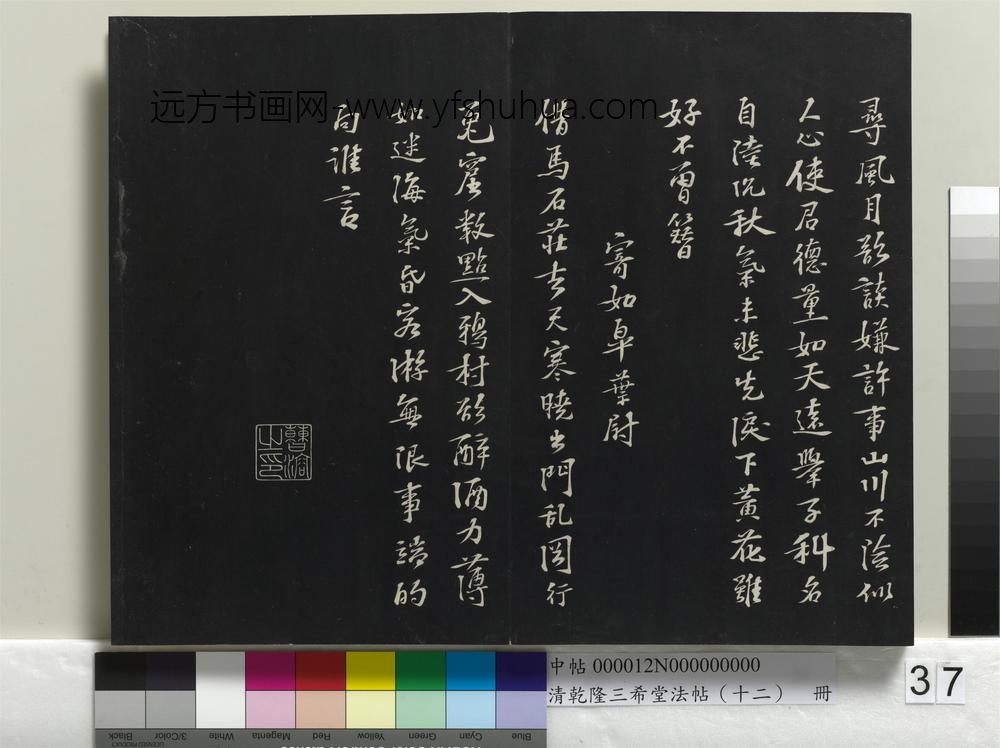 尋風月欲談嫌許事山川不隂似
人心使君德量如天遠舉子科名
自陸沉秋氣未悲先淚下黃花雖
好不曾簪
寄如臯葉尉
借馬石莊去天寒曉出門乱岡行
兎窟數點入鴉村欲醉酒力薄
如迷海氣昏客游無限事端的
向誰言
遠方书画网-www.yfshuhua.com
中帖 000012N000000000
清乾隆三希堂法帖（十二） 冊
37
Blue Cyan Green Yellow Red Magenta White 3/Color Black